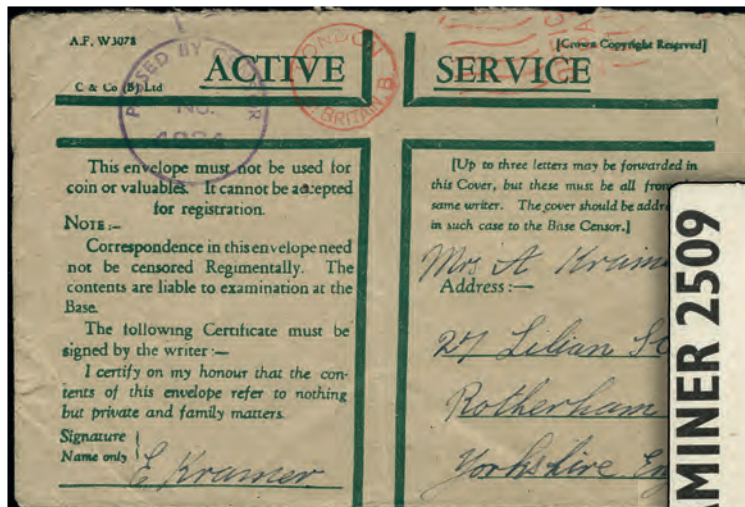 A.F. W3078
[Crown Copyright Reserved]
PASSED BY
No.
LONDON
BRITAIN. B
C & Co (B) Ltd
ACTIVE SERVICE
This envelope must not be used for
coin or valuables. It cannot be accepted
for registration.
NOTE:—
Correspondence in this envelope need
not be censored Regimentally. The
contents are liable to examination at the
Base.
The following Certificate must be
signed by the writer:—
I certify on my honour that the con-
tents of this envelope refer to nothing
but private and family matters.
Signature
Name only
E Kramer
[Up to three letters may be forwarded in
this Cover, but these must be all from
same writer. The cover should be addre
in such case to the Base Censor.]
Mrs A Kram
Address:—
27 Lilian St
Rotherham
Yorkshire En
MINER 2509